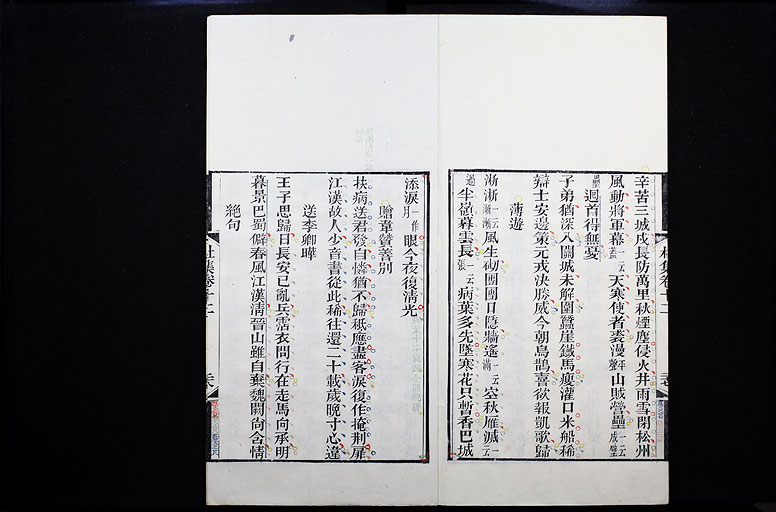 辛苦三城戍長防萬里秋煙塵侵火井雨雪閉松州
風動將軍幕一云蓋天寒使者裘漫平聲山賊營壘一云成壁
壘迴首得無憂
子弟猶深入關城未解圍蠶崖鐵馬瘦灌口米船稀
辯士安邊策元戎決勝威今朝烏鵲喜欲報凱歌歸
薄遊
淅淅一云風生砌團團日隱牆遙一云滿空秋雁滅一云
過半嶺暮雲長一云張病葉多先墜寒花只暫香巴城
添淚一作月眼今夜復清光
贈韋贊善別
扶病送君發自憐猶不歸秖應盡客淚復作掩荆扉
江漢故人少音書從此稀往還二十載歲晚寸心違
送李卿曄
王子思歸日長安已亂兵霑衣問行在走馬向承明
暮景巴蜀僻春風江漢清晉山雖自棄魏闕尚含情
絕句
杜集卷十二